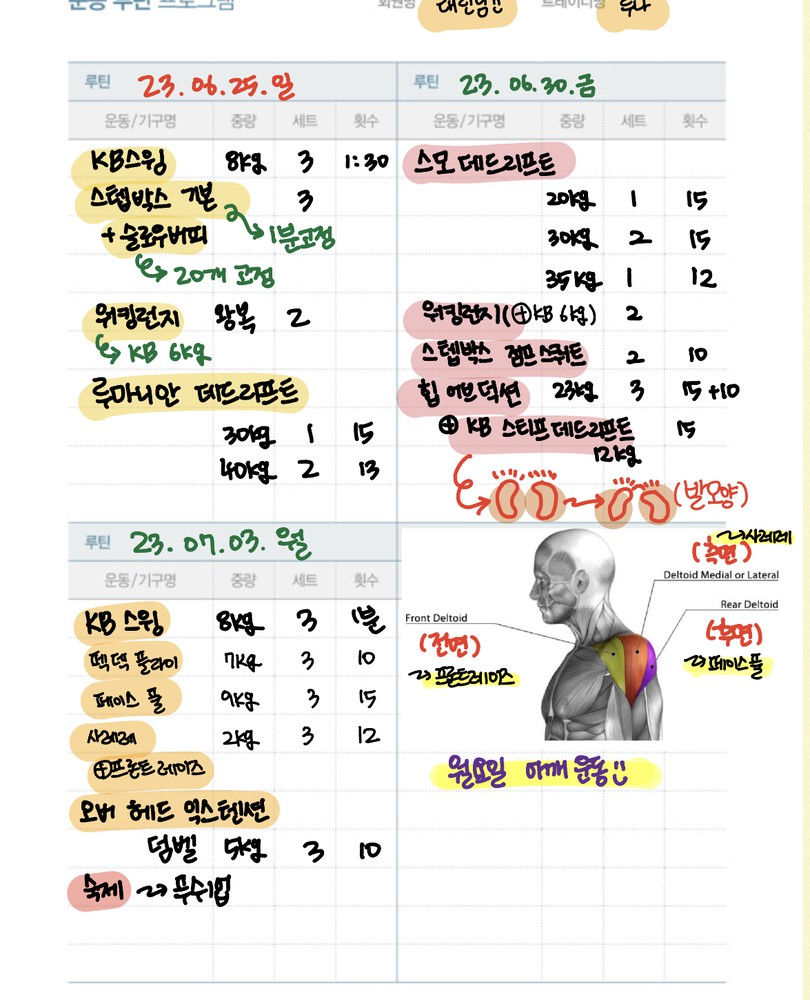 운동 루틴 프로그램 회원명 대민님!! 트레이너명 루나
루틴 23.06.25.일
운동/기구명 중량 세트 횟수
KB스윙 8kg 3 1:30
스텝박스 기본 3
+ 슬로우버피 1분고정
20개 고정
워킹런지 왕복 2
KB 6kg
루마니안 데드리프트
30kg 1 15
40kg 2 13
루틴 23.06.30.금
운동/기구명 중량 세트 횟수
스모 데드리프트
20kg 1 15
30kg 2 15
35kg 1 12
워킹런지(⊕KB 6kg) 2
스텝박스 점프스쿼트 2 10
힙 어브덕션 23kg 3 15+10
⊕ KB 스티프데드리프트 15
12kg
(발모양)
루틴 23.07.03.월
운동/기구명 중량 세트 횟수
KB 스윙 8kg 3 1분
펙덱 플라이 7kg 3 10
페이스 풀 9kg 3 15
사레레 2kg 3 12
⊕프론트레이즈
오버 헤드 익스텐션
덤벨 5kg 3 10
숙제 → 푸쉬업
→사레레
(측면)
Deltoid Medial or Lateral
Rear Deltoid
Front Deltoid
(전면)
(후면)
→프론트레이즈
→페이스풀
월요일 어깨 운동!!